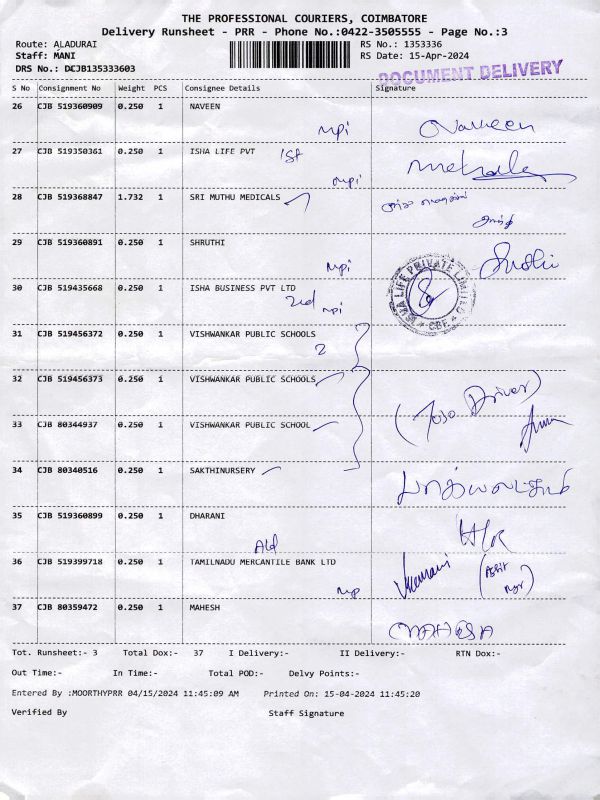 THE PROFESSIONAL COURIERS, COIMBATORE
Delivery Runsheet - PRR - Phone No.:0422-3505555 - Page No.:3
Route: ALADURAI
Staff: MANI
DRS No.: DCJB135333603
RS No.: 1353336
RS Date: 15-Apr-2024
DOCUMENT DELIVERY
S No Consignment No Weight PCS Consignee Details Signature
26 CJB 519360909 0.250 1 NAVEEN
mpi Naveen
27 CJB 519350361 0.250 1 ISHA LIFE PVT 1st
mpi
28 CJB 519368847 1.732 1 SRI MUTHU MEDICALS
29 CJB 519360891 0.250 1 SHRUTHI
mpi
30 CJB 519435668 0.250 1 ISHA BUSINESS PVT LTD
2nd mpi
ISHA LIFE PRIVATE LIMITED * CBE *
31 CJB 519456372 0.250 1 VISHWANKAR PUBLIC SCHOOLS
2
32 CJB 519456373 0.250 1 VISHWANKAR PUBLIC SCHOOLS
33 CJB 80344937 0.250 1 VISHWANKAR PUBLIC SCHOOL
Driver)
34 CJB 80340516 0.250 1 SAKTHINURSERY
35 CJB 519360899 0.250 1 DHARANI
36 CJB 519399718 0.250 1 TAMILNADU MERCANTILE BANK LTD
37 CJB 80359472 0.250 1 MAHESH
MAHESH
Tot. Runsheet:- 3 Total Dox:- 37 I Delivery:- II Delivery:- RTN Dox:-
Out Time:- In Time:- Total POD:- Delvy Points:-
Entered By :MOORTHYPRR 04/15/2024 11:45:09 AM Printed On: 15-04-2024 11:45:20
Verified By Staff Signature